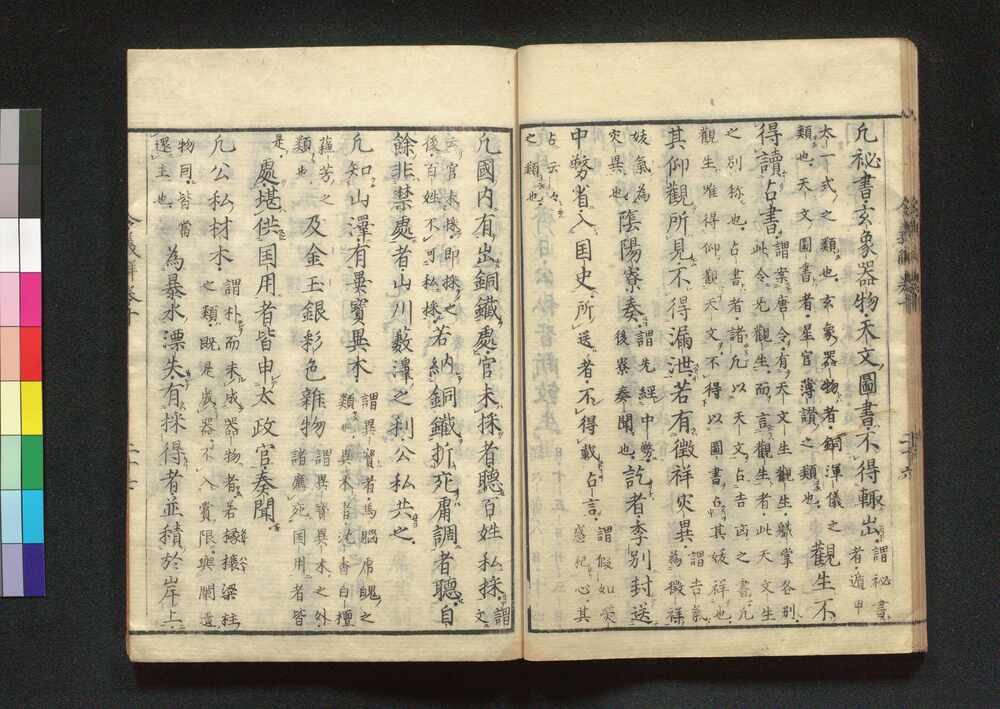 凢祕書玄象器物天文圖書不得輙出謂祕書
者遁甲
太一式之類也玄象器物者銅渾儀之
類也天文圖書者星官簿讃之類也觀生不
得讀占書謂案唐令有天文生觀生職掌各別
此令无觀生而言觀生者此天文生
之別称也占書者諸凢以天文占吉凶之書凢
觀生唯得仰觀天文不得以圖書占其妖祥也
其仰觀所見不得漏泄若有徴祥灾異謂吉氣
為徴祥
妖氣為
灾異也陰陽寮奏謂先經中務
後寮奏聞也訖者季別封送
中務省入国史所送者不得載占言謂假如熒
惑犯心其
占云々
之類也
凢國内有出銅鐵處官未採者聽百姓私採謂
文
云官未採即採之
後百姓不可私採若納銅鐵折充庸調者聽自
餘非禁處者山川藪澤之利公私共之
凢知山澤有異寳異木謂異寳者馬脳虎魄之
類也異木者沈香白檀
蘓芳之
類也及金玉銀彩色雜物謂異寳異木之外
諸應充国用者皆
是處堪供国用者皆申太政官奏聞
凢公私材木謂朴而未成器物者若椽梁柱
之類既是成器不入賞限與闌遺
物同皆當
還主也為暴水漂失有採得者並積於岸上
令義解卷十 二十七